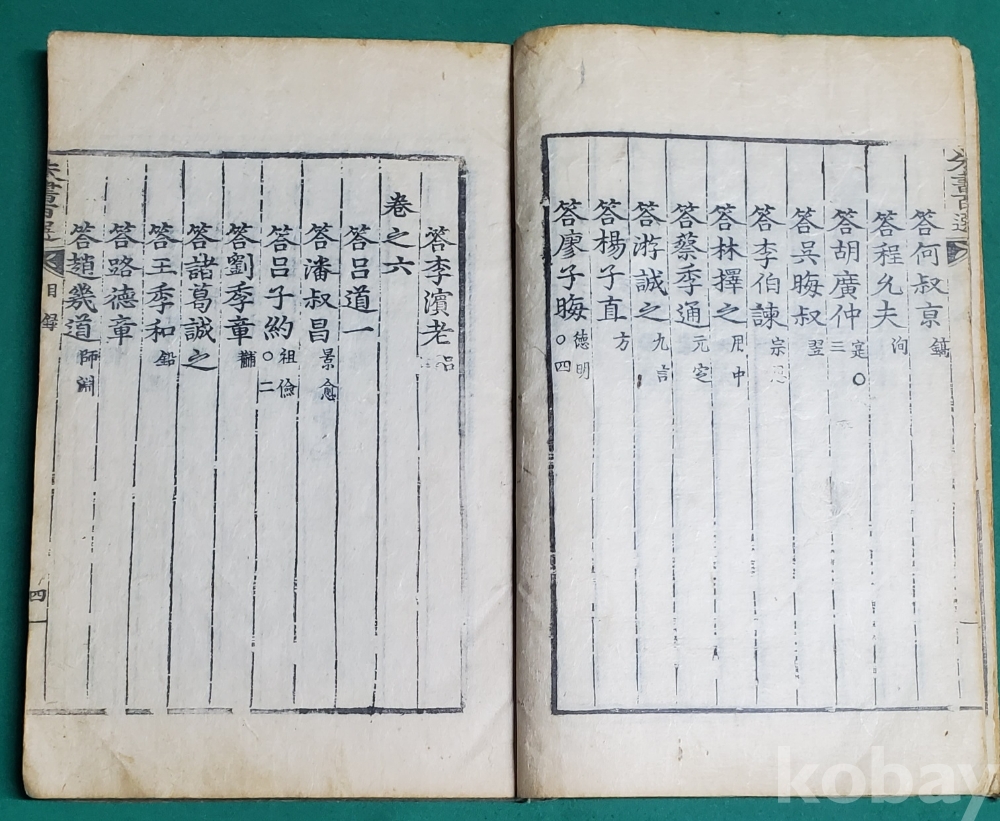 答何叔京 鎬
答程允夫 洵
答胡廣仲 寔○三
答吳晦叔 翌
答李伯諫 宗思
答林擇之 用中
答蔡季通 元定
答游誠之 九言
答楊子直 方
答廖子晦 德明○四
朱書百選
答李濱老 呂
卷之六
答呂道一
答潘叔昌 景愈
答呂子約 祖儉○二
答劉季章 黼
答諸葛誠之
答王季和 鉛
答路德章
答趙幾道 師淵
朱書百選 目錄 四
kobay